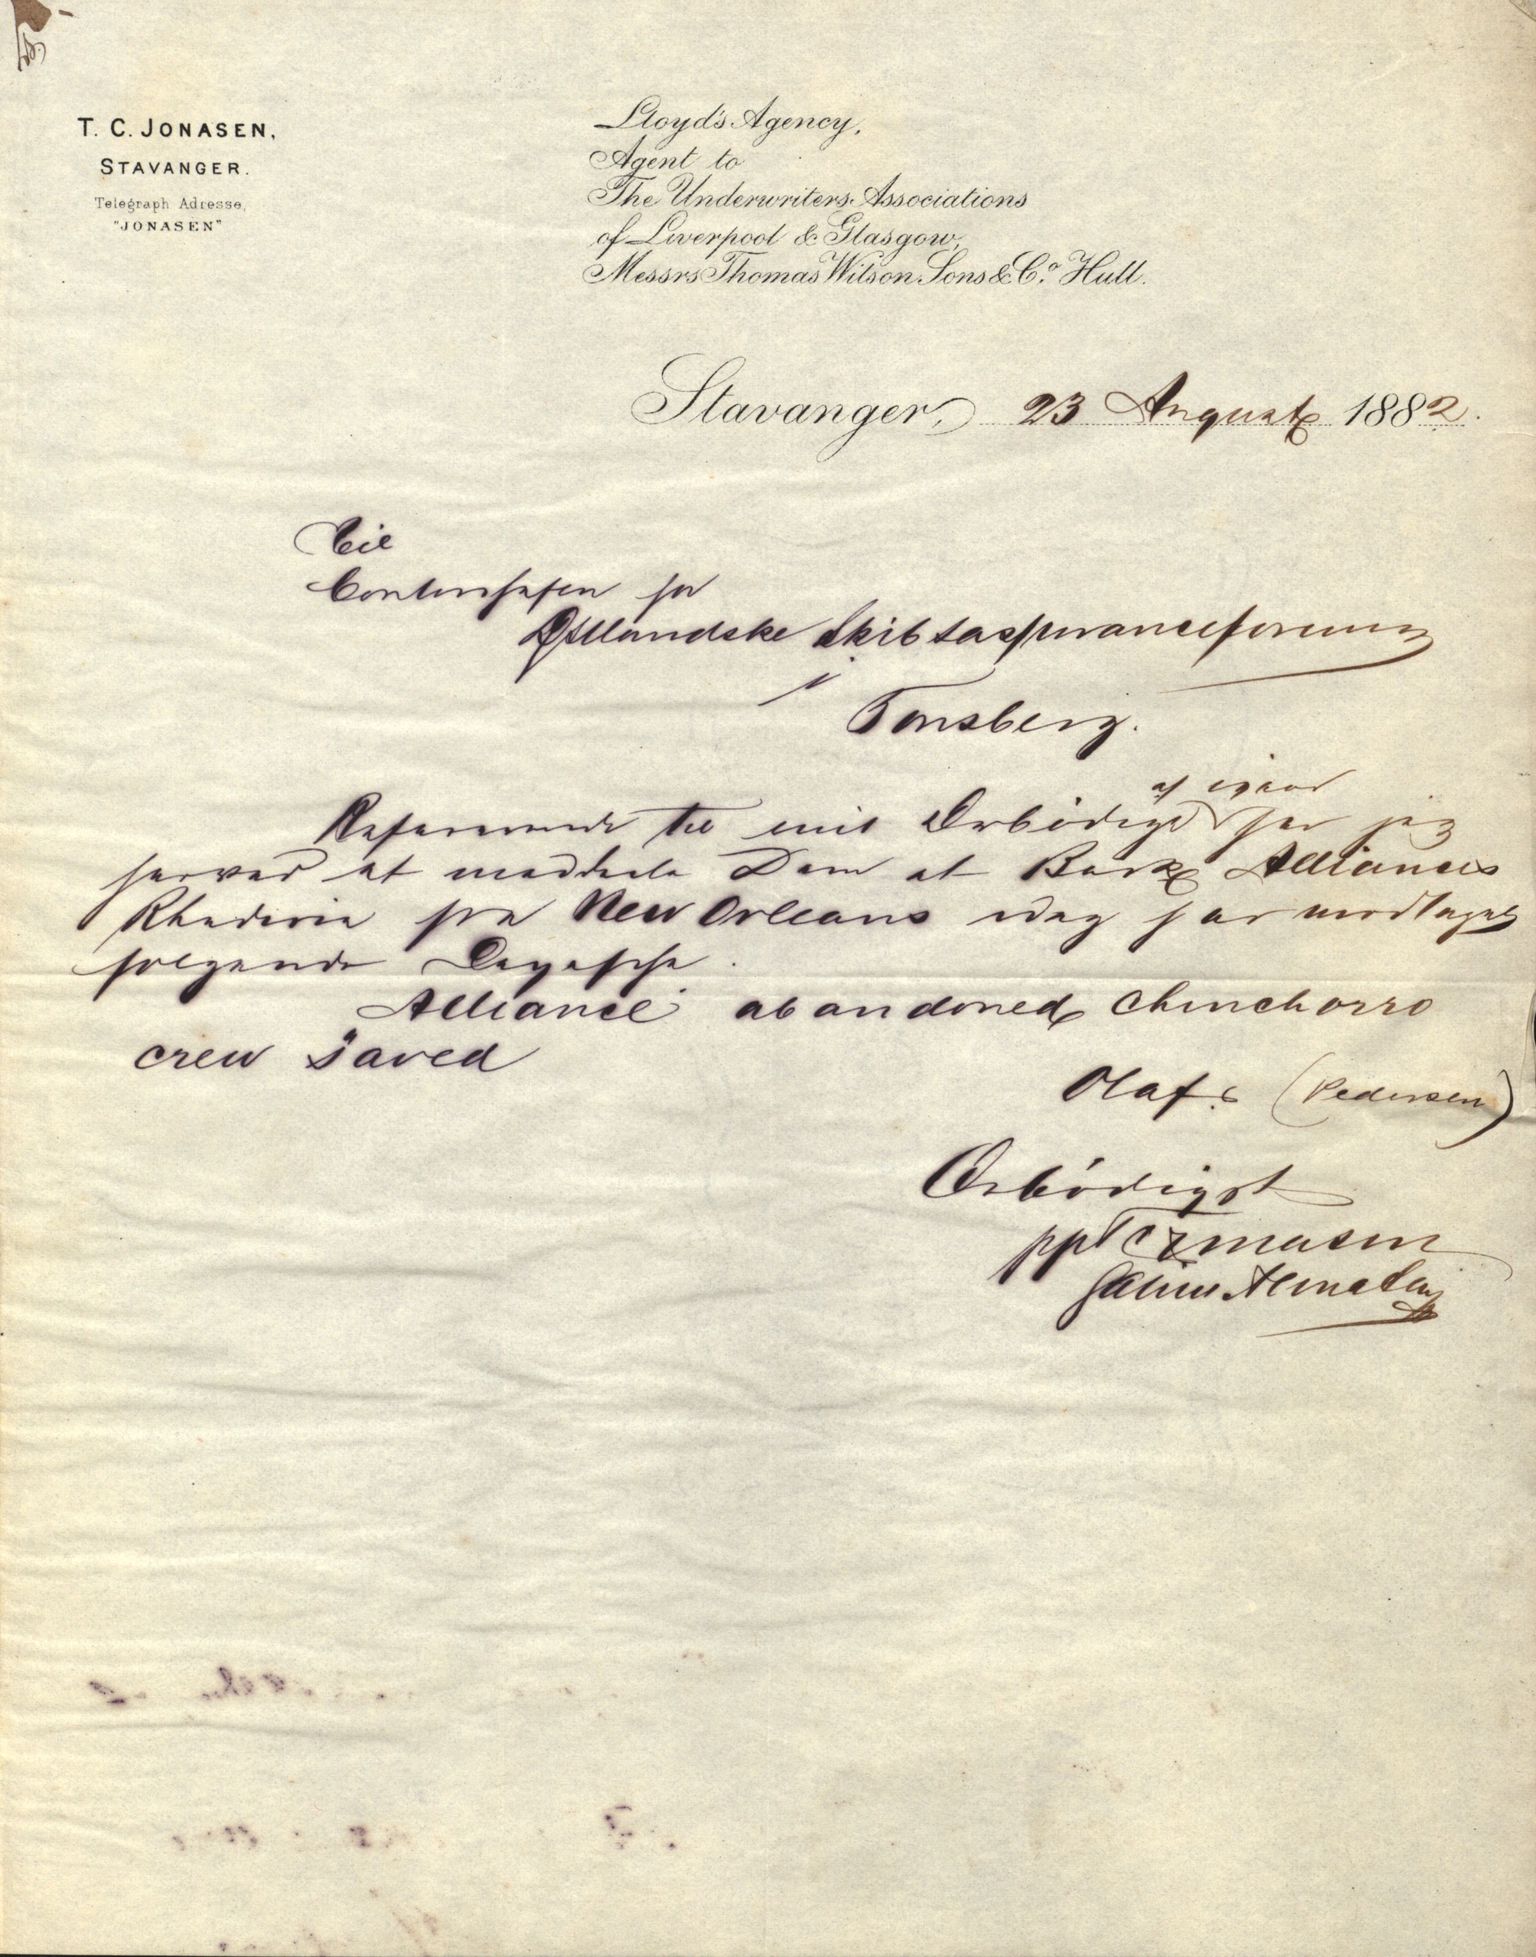 T. C. JONASEN,
STAVANGER.
Telegraph Adresse,
"JONASEN"
Lloyd's Agency,
Agent to
The Underwriters Associations
of Liverpool & Glasgow,
Messrs Thomas Wilson Sons & Co. Hull.
Stavanger, 23 August 1882.
Til
Contorchefen for
Østlandske Skibsassuranceforening
i
Tønsberg.
af igaar
Refererende til mit Ærbödige har jeg
herved at meddele Dem at Bark Alliances
Rhederie fra New Orleans idag har modtaget
følgende Depesche.
Alliance abandoned Chinchorro
crew saved
Olaf. (Pedersen)
Ærbödigst
pp T C Jonasen